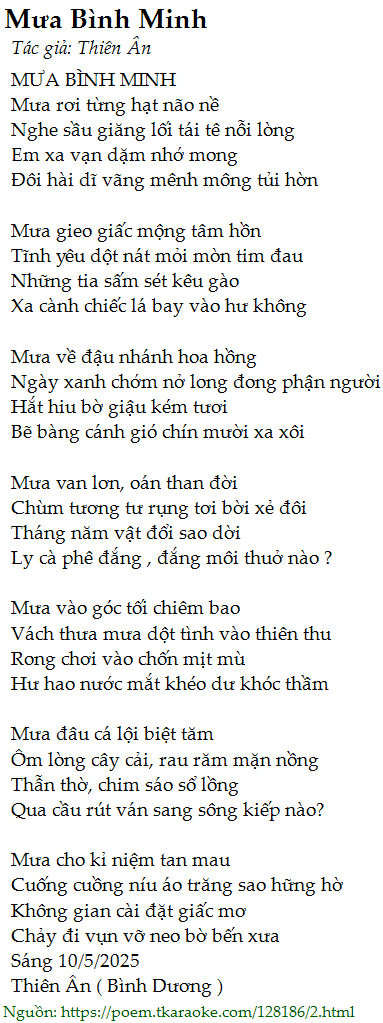 Mưa Bình Minh
Tác giả: Thiên Ân
MƯA BÌNH MINH
Mưa rơi từng hạt não nề
Nghe sầu giăng lối tái tê nỗi lòng
Em xa vạn dặm nhớ mong
Đôi hài dĩ vãng mênh mông tủi hờn

Mưa gieo giấc mộng tâm hồn
Tĩnh yêu dột nát mỏi mòn tim đau
Những tia sấm sét kêu gào
Xa cành chiếc lá bay vào hư không

Mưa về đậu nhánh hoa hồng
Ngày xanh chớm nở long đong phận người
Hắt hiu bờ giậu kém tươi
Bẽ bàng cánh gió chín mười xa xôi

Mưa van lơn, oán than đời
Chùm tương tư rụng tơi bời xẻ đôi
Tháng năm vật đổi sao dời
Ly cà phê đắng , đắng môi thuở nào ?

Mưa vào góc tối chiêm bao
Vách thưa mưa dột tình vào thiên thu
Rong chơi vào chốn mịt mù
Hư hao nước mắt khéo dư khóc thầm

Mưa đâu cá lội biệt tăm
Ôm lòng cây cải, rau răm mặn nồng
Thẫn thờ, chim sáo sổ lồng
Qua cầu rút ván sang sông kiếp nào?

Mưa cho kỉ niệm tan mau
Cuống cuồng níu áo trăng sao hững hờ
Không gian cài đặt giấc mơ
Chảy đi vụn vỡ neo bờ bến xưa
Sáng 10/5/2025
Thiên Ân ( Bình Dương )
Nguồn: https://poem.tkaraoke.com/128186/2.html